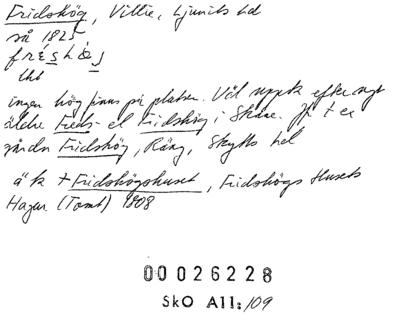 Fridshög, Villie, Ljunits hd
så 1825
fréshöj
lht
ingen hög finns på platsen. Väl uppk efter ngt
äldre Freds- el Fridshög i Skåne. Jfr t ex
gården Fridshög, Räng, Skytts hd
äk + Fridshögshuset, Fridshögs Husets
Hagen (Tomt) 1808
00026228
SkO All: 109